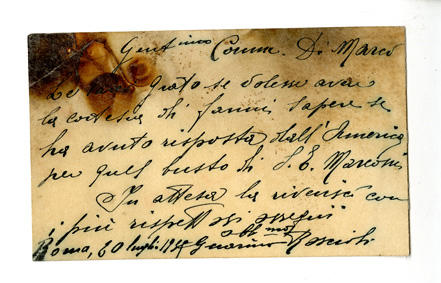 Gent.imo Comm. Di Marco
Le sarei grato se volesse aver
la cortesia di farmi sapere se
ha avuto risposta dall'America
per quel busto di S. E. Marconi
In attesa la riverisco con
i più rispettosi ossequi
obb mo
Roma, 20 luglio Guarino Roscioli